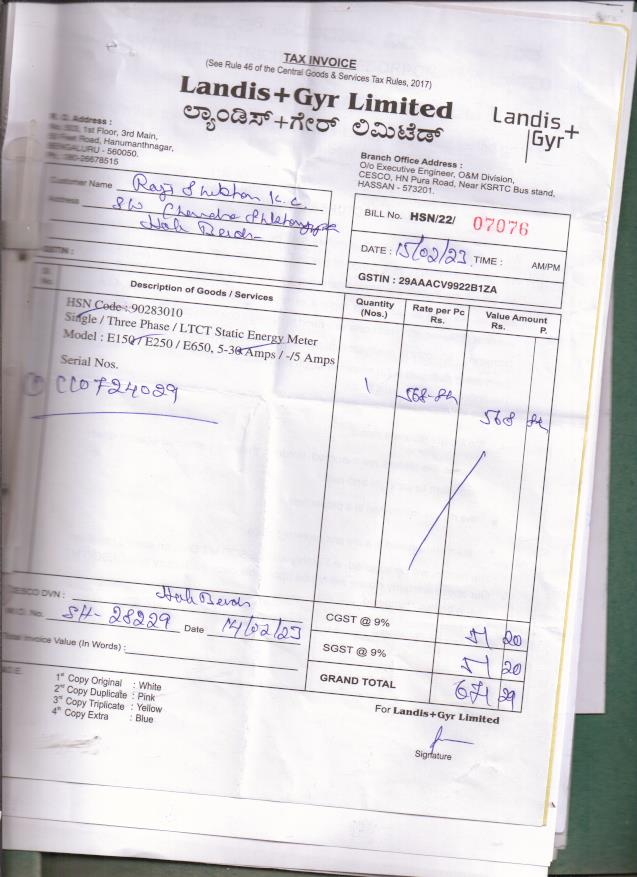 TAX INVOICE
(See Rule 46 of the Central Goods & Services Tax Rules, 2017)
Landis+Gyr Limited
ಲ್ಯಾಂಡಿಸ್+ಗೇರ್ ಲಿಮಿಟೆಡ್
Landis+
Gyr
Address :
1st Floor, 3rd Main,
Feet Road, Hanumanthnagar,
BENGALURU - 560050.
Ph. 080-26678515
Branch Office Address :
O/o Executive Engineer, O&M Division,
CESCO, HN Pura Road, Near KSRTC Bus stand,
HASSAN - 573201.
Customer Name
Address
GSTIN :
BILL No. HSN/22/ 07076
DATE : 15/02/23 TIME : AM/PM
GSTIN : 29AAACV9922B1ZA
Sl. No. Description of Goods / Services Quantity (Nos.) Rate per Pc Rs. Value Amount Rs. P.
HSN Code : 90283010
Single / Three Phase / LTCT Static Energy Meter
Model : E150 / E250 / E650, 5-30 Amps / -/5 Amps
Serial Nos.
CC0724029 1 568-84 568 84
CESCO DVN :
M.I.O. No. SH-28229 Date 14/02/23
Total Invoice Value (In Words) :
CGST @ 9% 51 20
SGST @ 9% 51 20
GRAND TOTAL 671 29
NOTE:
1st Copy Original : White
2nd Copy Duplicate : Pink
3rd Copy Triplicate : Yellow
4th Copy Extra : Blue
For Landis+Gyr Limited
Signature